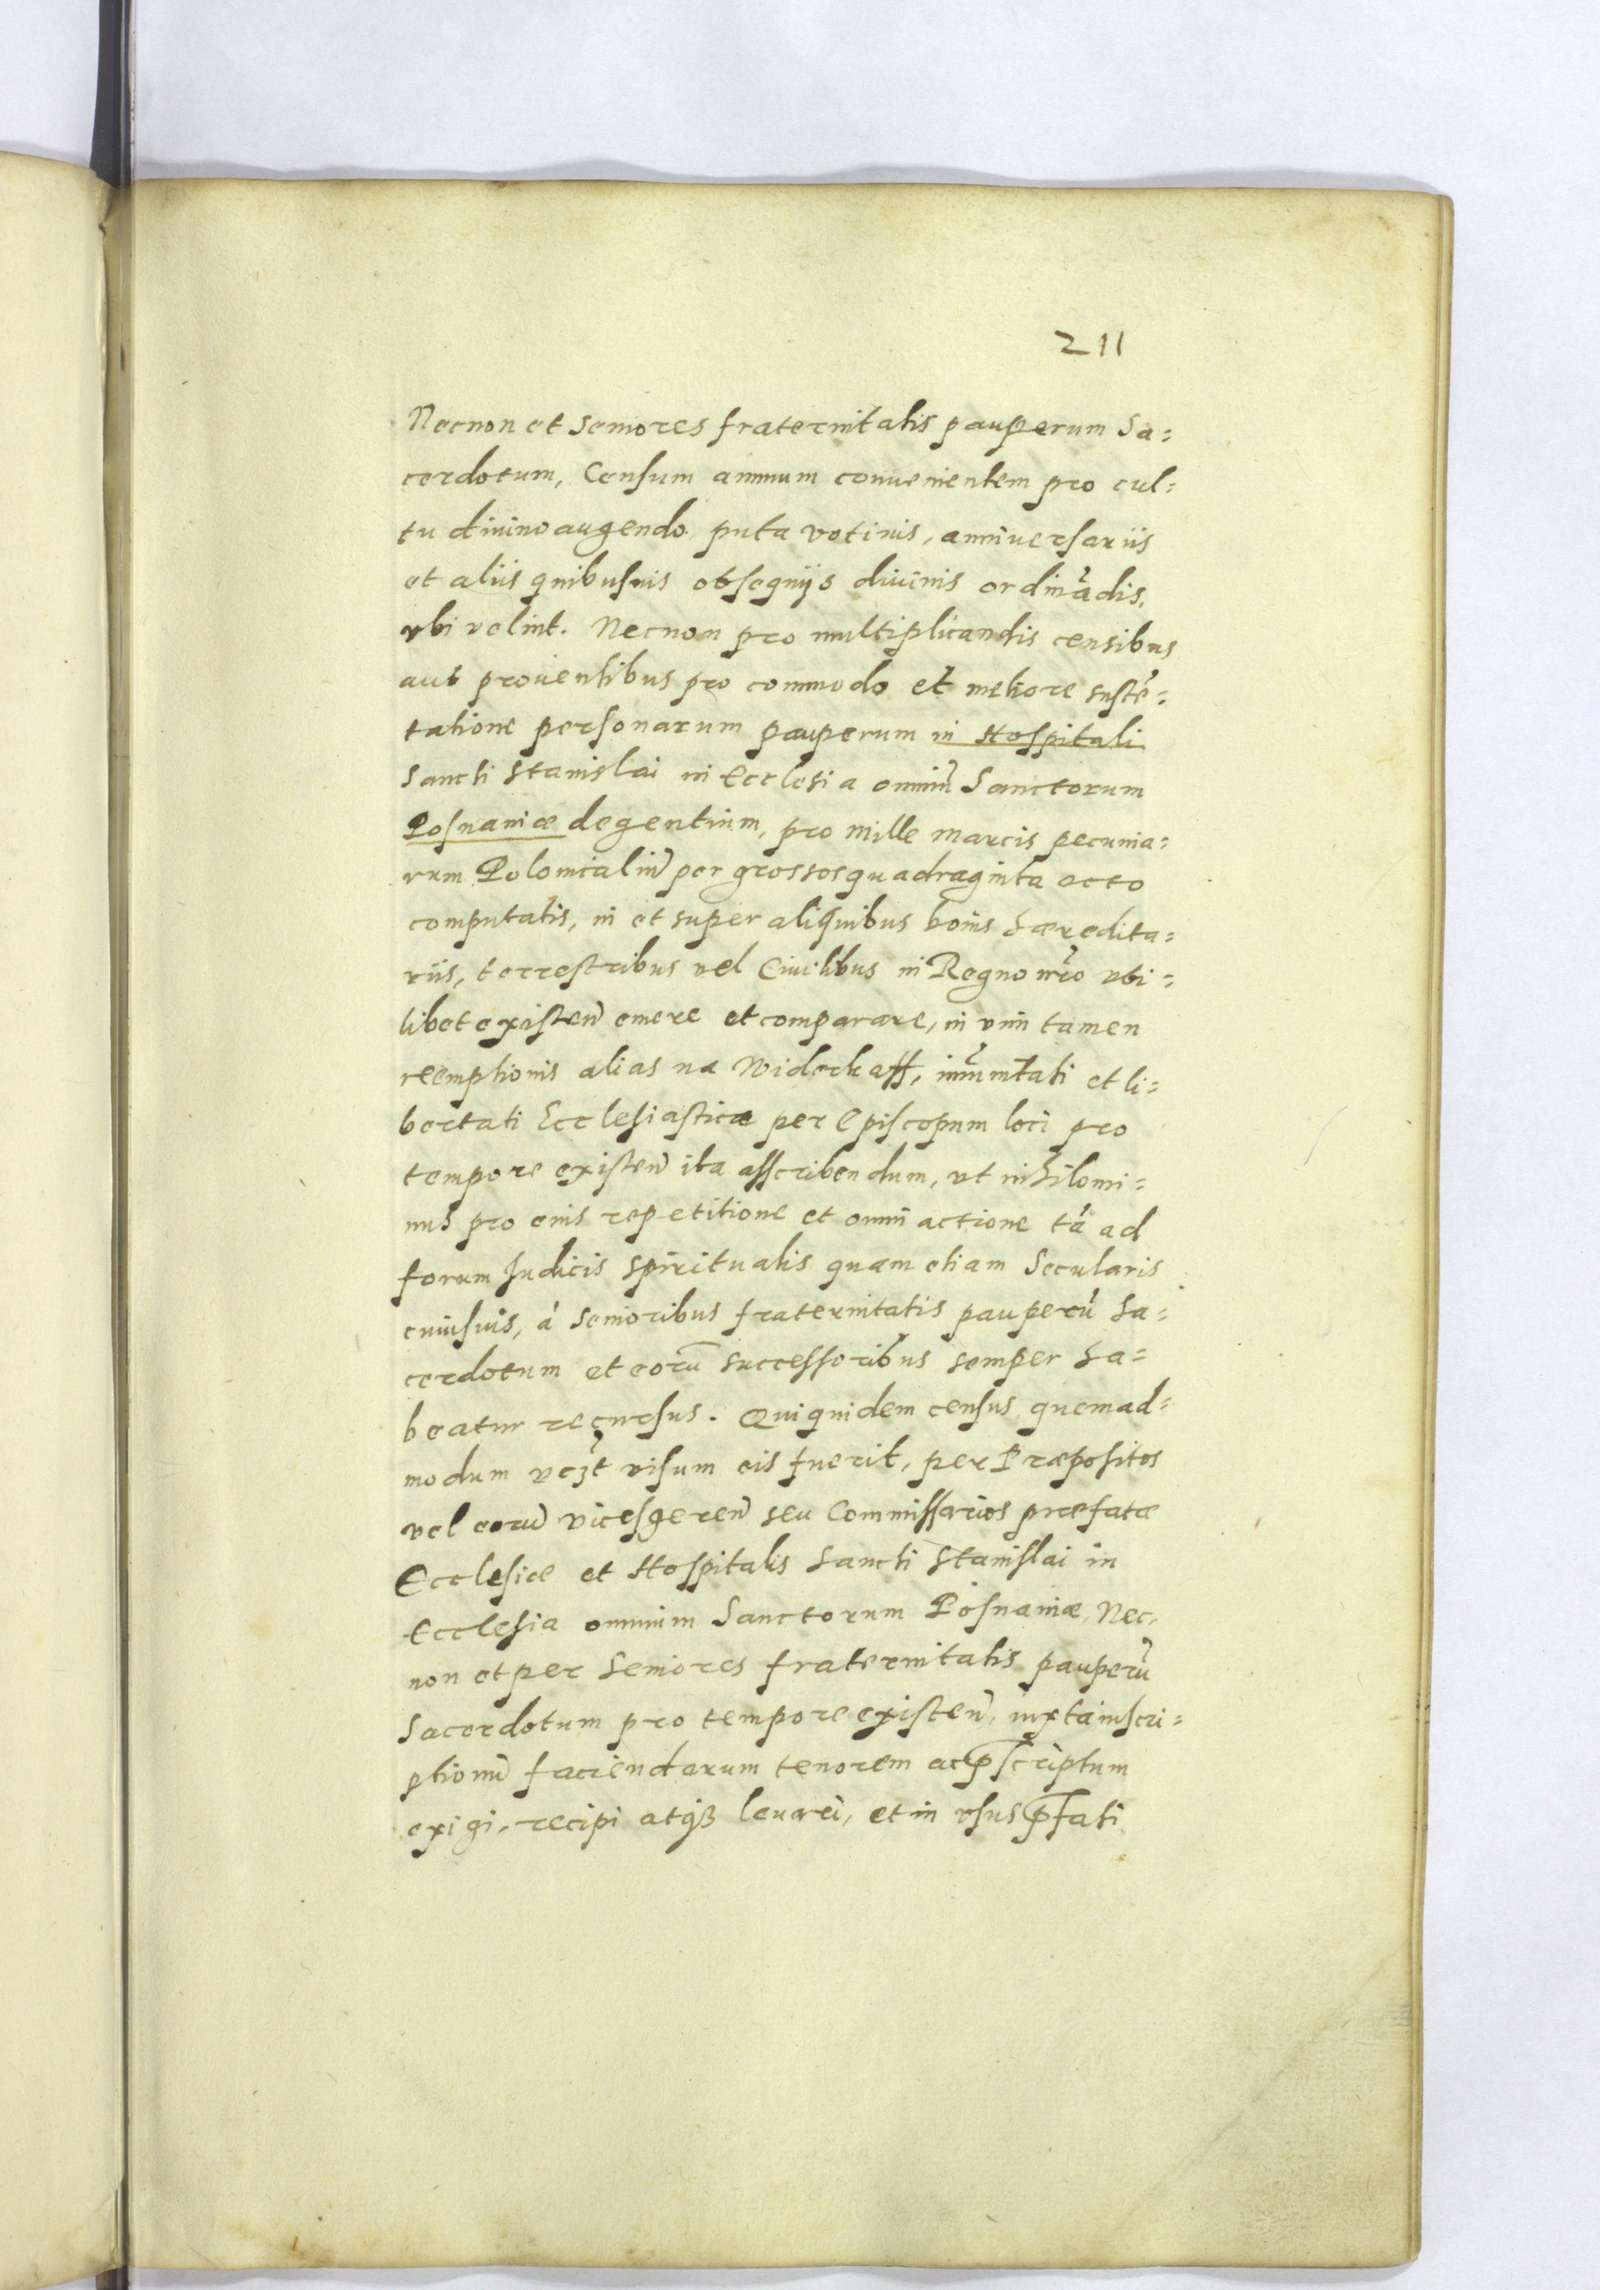 211
Necnon et Seniores fraternitatis pauperum Sa=
cerdotum, Censum annuum conuenientem pro cul=
tu diuino augendo puta votiuis, anniuersariis
et aliis quibusuis obsequijs diuinis ordinãdis,
vbi velint. Necnon pro multiplicandis censibus
aut prouentibus pro commodo et meliore sustẽ=
tatione personarum pauperum in Hospitali
Sancti Stanislai in Ecclesia omniũ Sanctorum
Posnaniæ degentium, pro mille marcis pecunia=
rum Polonicaliũ per grossos quadraginta octo
computatis, in et super aliquibus bonis hæredita=
riis, terrestribus vel Ciuilibus in Regno nr̃o vbi=
libet existeñ emere et comparare, in vim tamen
reemptionis alias na Widerkaff, im̃unitati et li=
bertati Ecclesiasticæ per Episcopum loci pro
tempore existeñ ita asscribendum, vt nihilomi=
nus pro eius repetitione et omni actione tã ad
forum Iudicis Spiritualis quam etiam Secularis
cuiusuis, à Senioribus fraternitatis pauperũ Sa=
cerdotum et eorũ successoribus semper ha=
beatur recursus. Qui quidem census quemad=
modum vcz̃t visum eis fuerit, per Præpositos
vel eorũ vicesgereñ seu Commissarios præfatæ
Ecclesiæ et Hospitalis Sancti Stanislai in
Ecclesia omnium Sanctorum Posnaniæ, Nec,
non et per Seniores fraternitatis pauperũ
Sacerdotum pro tempore existeñ, iuxta inscri=
ptionũ faciendarum tenorem ac p̃scriptum
exigi, recipi atqȝ leuari, et in vsus p̃fati